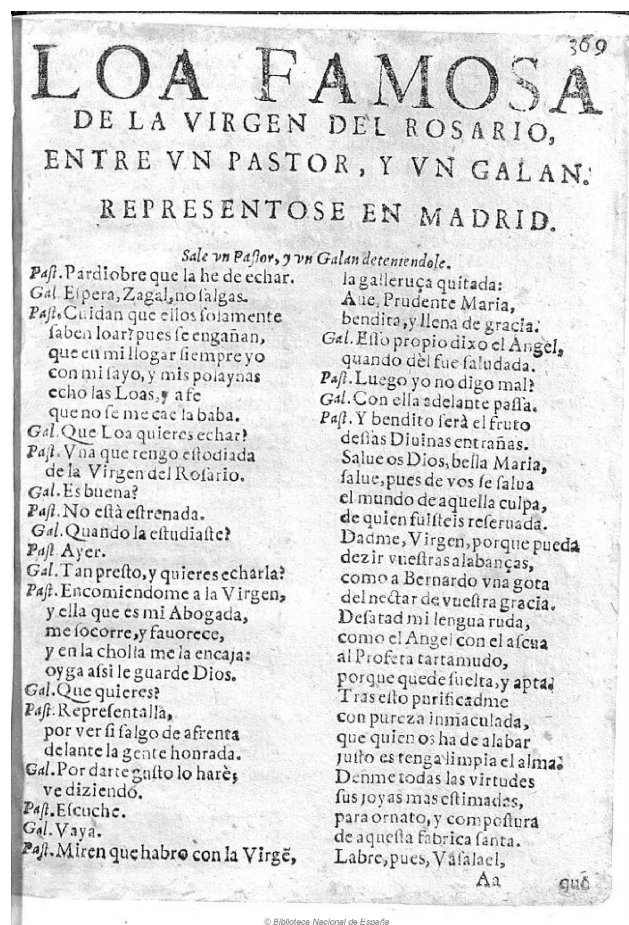 369
LOA FAMOSA
DE LA VIRGEN DEL ROSARIO,
ENTRE VN PASTOR, Y VN GALAN.
REPRESENTOSE EN MADRID.
Sale vn Paſtor, y vn Galan deteniendole.
Paſt. Pardiobre que la he de echar.
Gal. Eſpera, Zagal, no ſalgas.
Paſt. Cuidan que ellos ſolamente
ſaben loar? pues ſe engañan,
que en mi llogar ſiempre yo
con mi ſayo, y mis polaynas
echo las Loas, y a fe
que no ſe me cae la baba.
Gal. Que Loa quieres echar?
Paſt. Vna que tengo eſtodiada
de la Virgen del Roſario.
Gal. Es buena?
Paſt. No eſtà eſtrenada.
Gal. Quando la eſtudiaſte?
Paſt. Ayer.
Gal. Tan preſto, y quieres echarla?
Paſt. Encomiendome a la Virgen,
y ella que es mi Abogada,
me ſocorre, y fauorece,
y en la cholla me la encaja:
oyga aſsi le guarde Dios.
Gal. Que quieres?
Paſt. Repreſentalla,
por ver ſi ſalgo de afrenta
delante la gente honrada.
Gal. Por darte guſto lo harè,
ve diziendo.
Paſt. Eſcuche.
Gal. Vaya.
Paſt. Miren que habro con la Virgẽ,
la galleruça quitada:
Aue, Prudente Maria,
bendita, y llena de gracia.
Gal. Eſſo propio dixo el Angel,
quando dèl fue ſaludada.
Paſt. Luego yo no digo mal?
Gal. Con ella adelante paſſa.
Paſt. Y bendito ſerà el fruto
deſſas Diuinas entrañas.
Salue os Dios, bella Maria,
ſalue, pues de vos ſe ſalua
el mundo de aquella culpa,
de quien fuiſteis reſeruada.
Dadme, Virgen, porque pueda
dezir vueſtras alabanças,
como a Bernardo vna gota
del nectar de vueſtra gracia.
Deſatad mi lengua ruda,
como el Angel con el aſcua
al Profeta tartamudo,
porque quede ſuelta, y apta.
Tras eſto purificadme
con pureza inmaculada,
que quien os ha de alabar
juſto es tenga limpia el alma.
Denme todas las virtudes
ſus joyas mas eſtimadas,
para ornato, y compoſtura
de aqueſta fabrica ſanta.
Labre, pues, Vaſalael,
Aa
que
© Biblioteca Nacional de España